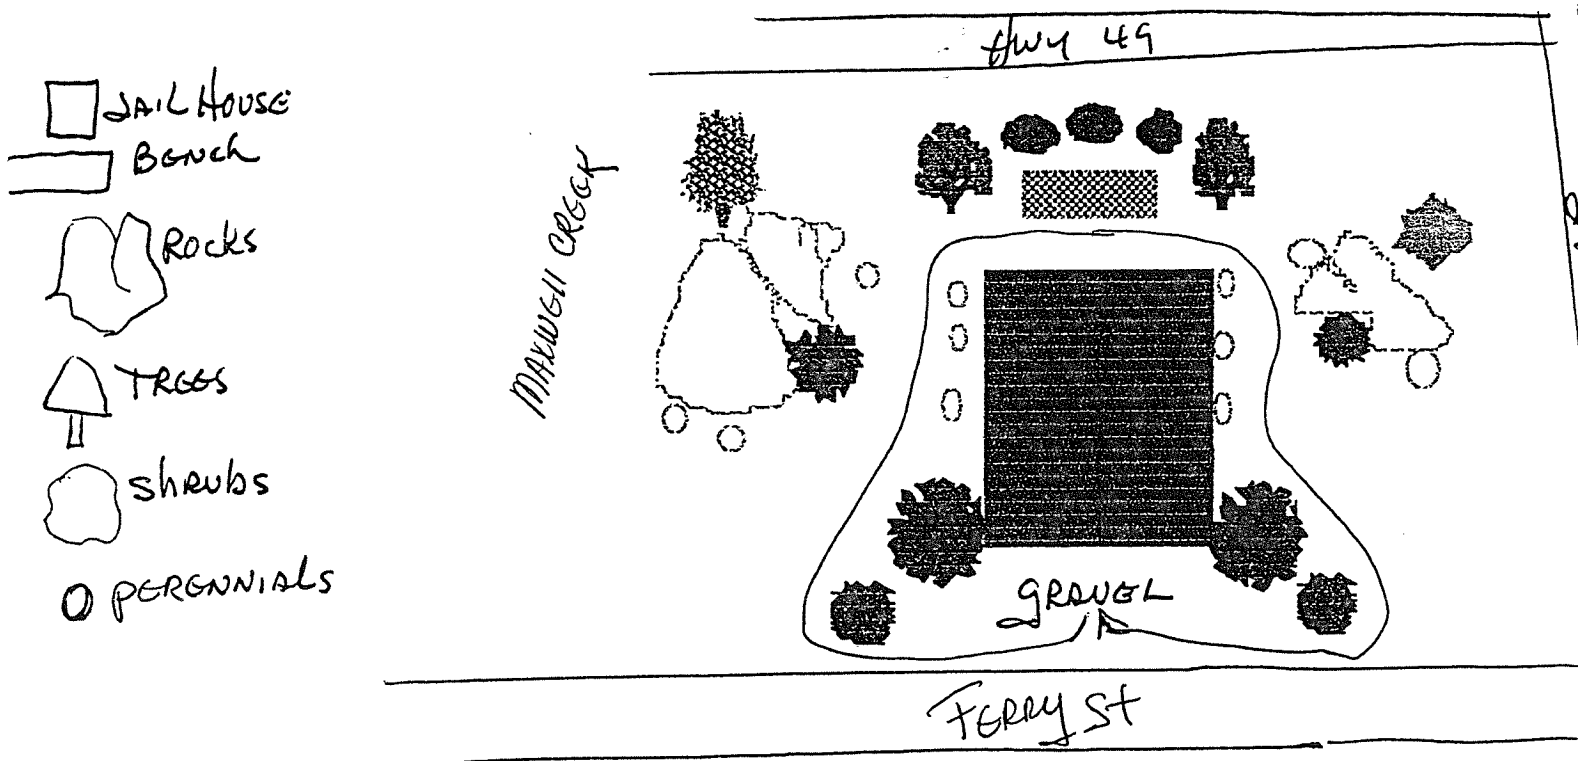 HWY 49
JAIL HOUSE
BENCH
ROCKS
TREES
ShRubs
PERENNIALS
MAXWELL CREEK
GRAVEL
FERRY St